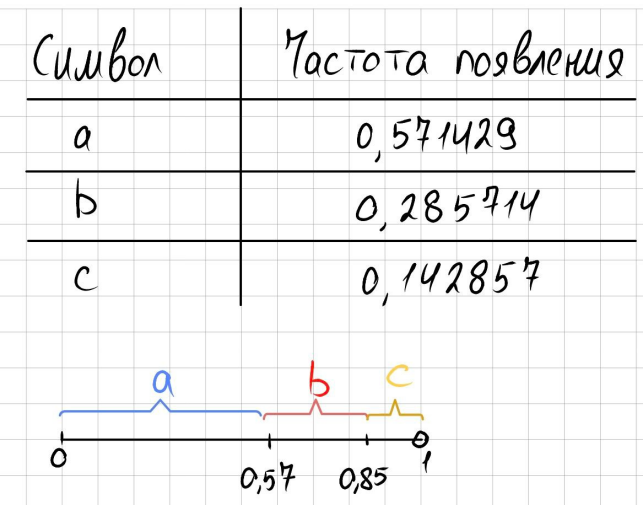 Символ Частота появления
a 0,571429
b 0,285714
c 0,142857
a b c
0 0,57 0,85 1